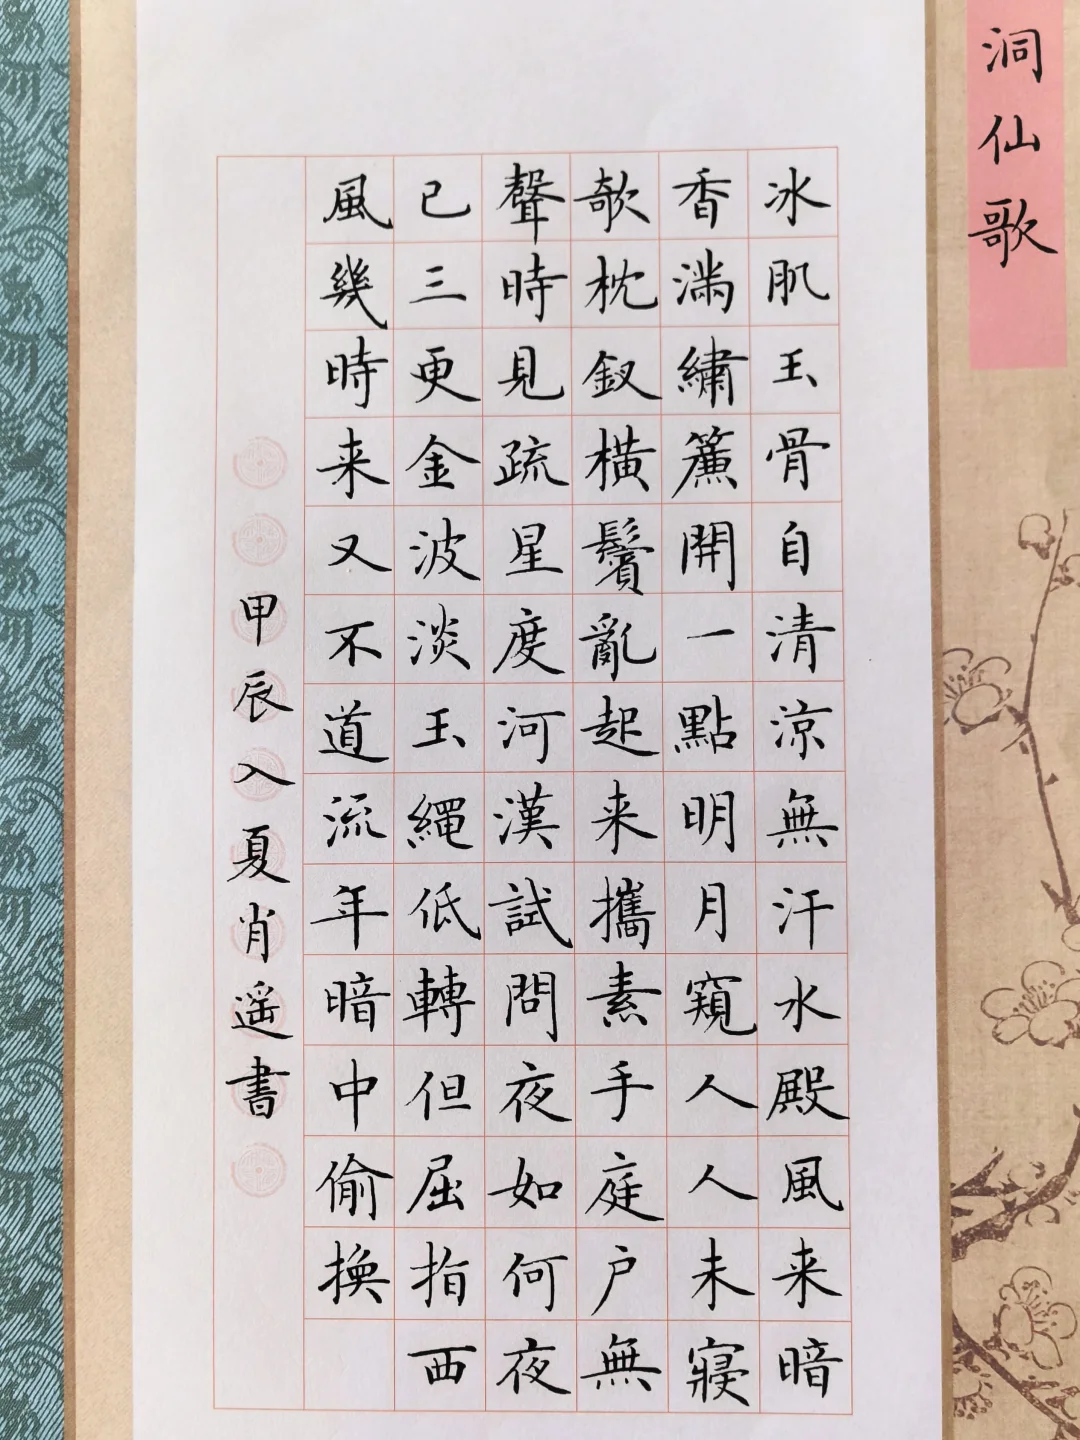 洞仙歌
冰肌玉骨自清涼無汗水殿風来暗
香滿繡簾開一點明月窺人人未寢
欹枕釵橫鬢亂起来攜素手庭户無
聲時見疏星度河漢試問夜如何夜
已三更金波淡玉繩低轉但屈指西
風幾時来又不道流年暗中偷換
甲辰入夏肖遥書